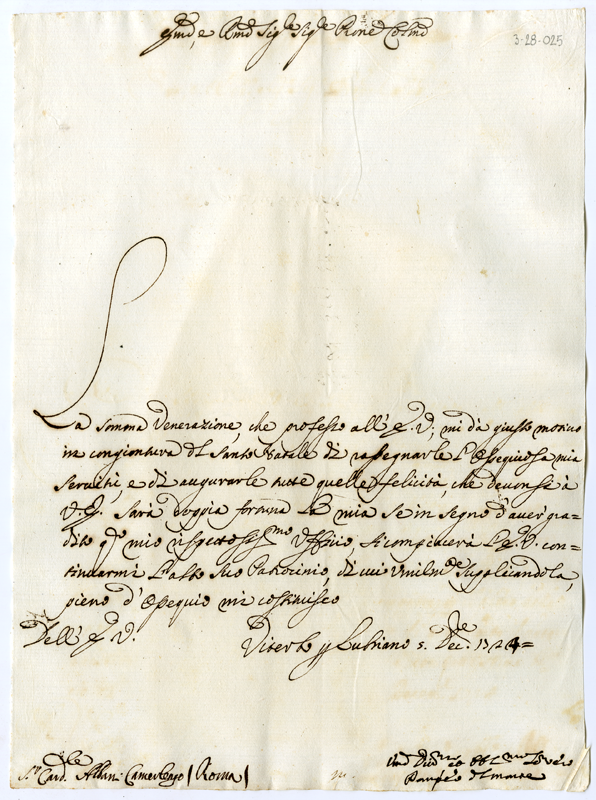 Em̃o, e Rmõ Sig.re Sig.re Pñe Colmõ
3-28-025
La somma Venerazione, che professo all' E. V., mi dà giusto motivo
in congiontura del Santo Natale di rassegnarle l'Ossequiosa mia
servitù, e di augurarle tutte quelle felicità, che devonsi à
V. E. Sarà doppia fortuna la mia se in segno d'aver gra-
dito q.to mio rispettosiss.mo Uffizio, si compiacerà l'E. V. con-
tinuarmi l'alto suo Patrocinio, di cui umilm.te supplicandola,
pieno d'Ossequio mi costituisco
Dell' E. V.
Viterbo p Lubriano 5. Dec.re 1724=
S.r Card.le Albani Camerlengo (Roma)
Um̃o Div.mo ed Obb.mo Servo